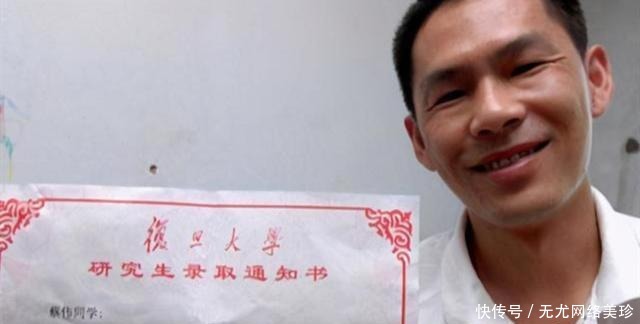 復旦大学
研究生录取通知书
蔡伟同学：
快传号 / 无尤网络美珍